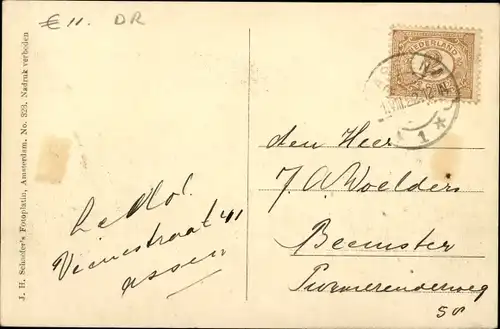 € 11. DR
J. H. Schaefer's Fotoplatin, Amsterdam. No. 328. Nadruk verboden
NEDERLAND
1 ★
den Heer
J A Woelders
Beemster
Purmerenderweg
58
41
assen